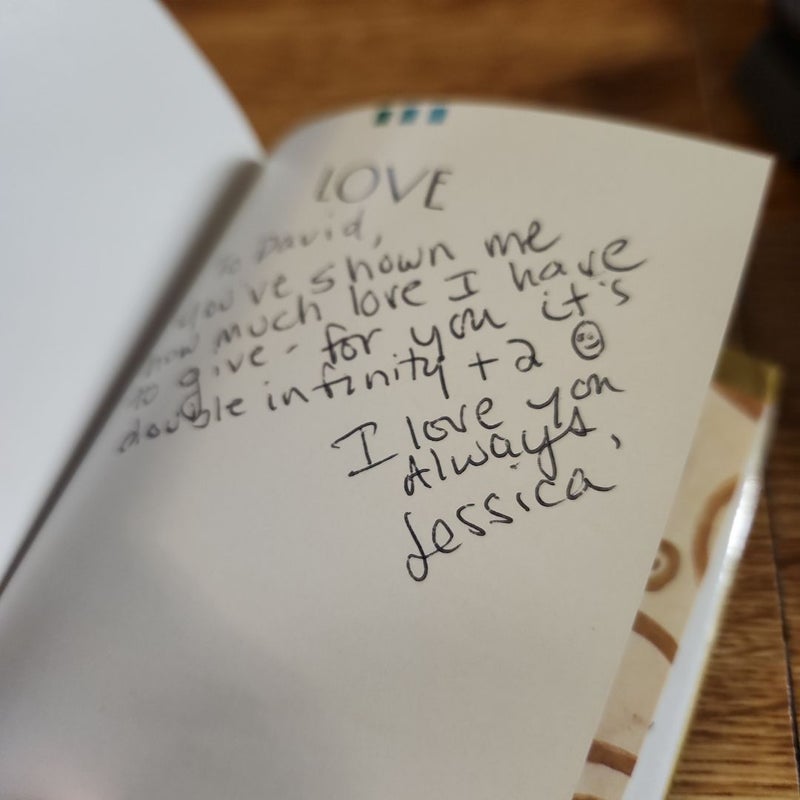 LOVE
To David,
you've shown me
how much love I have
to give - for you it's
double infinity + 2
I love you
Always,
Jessica